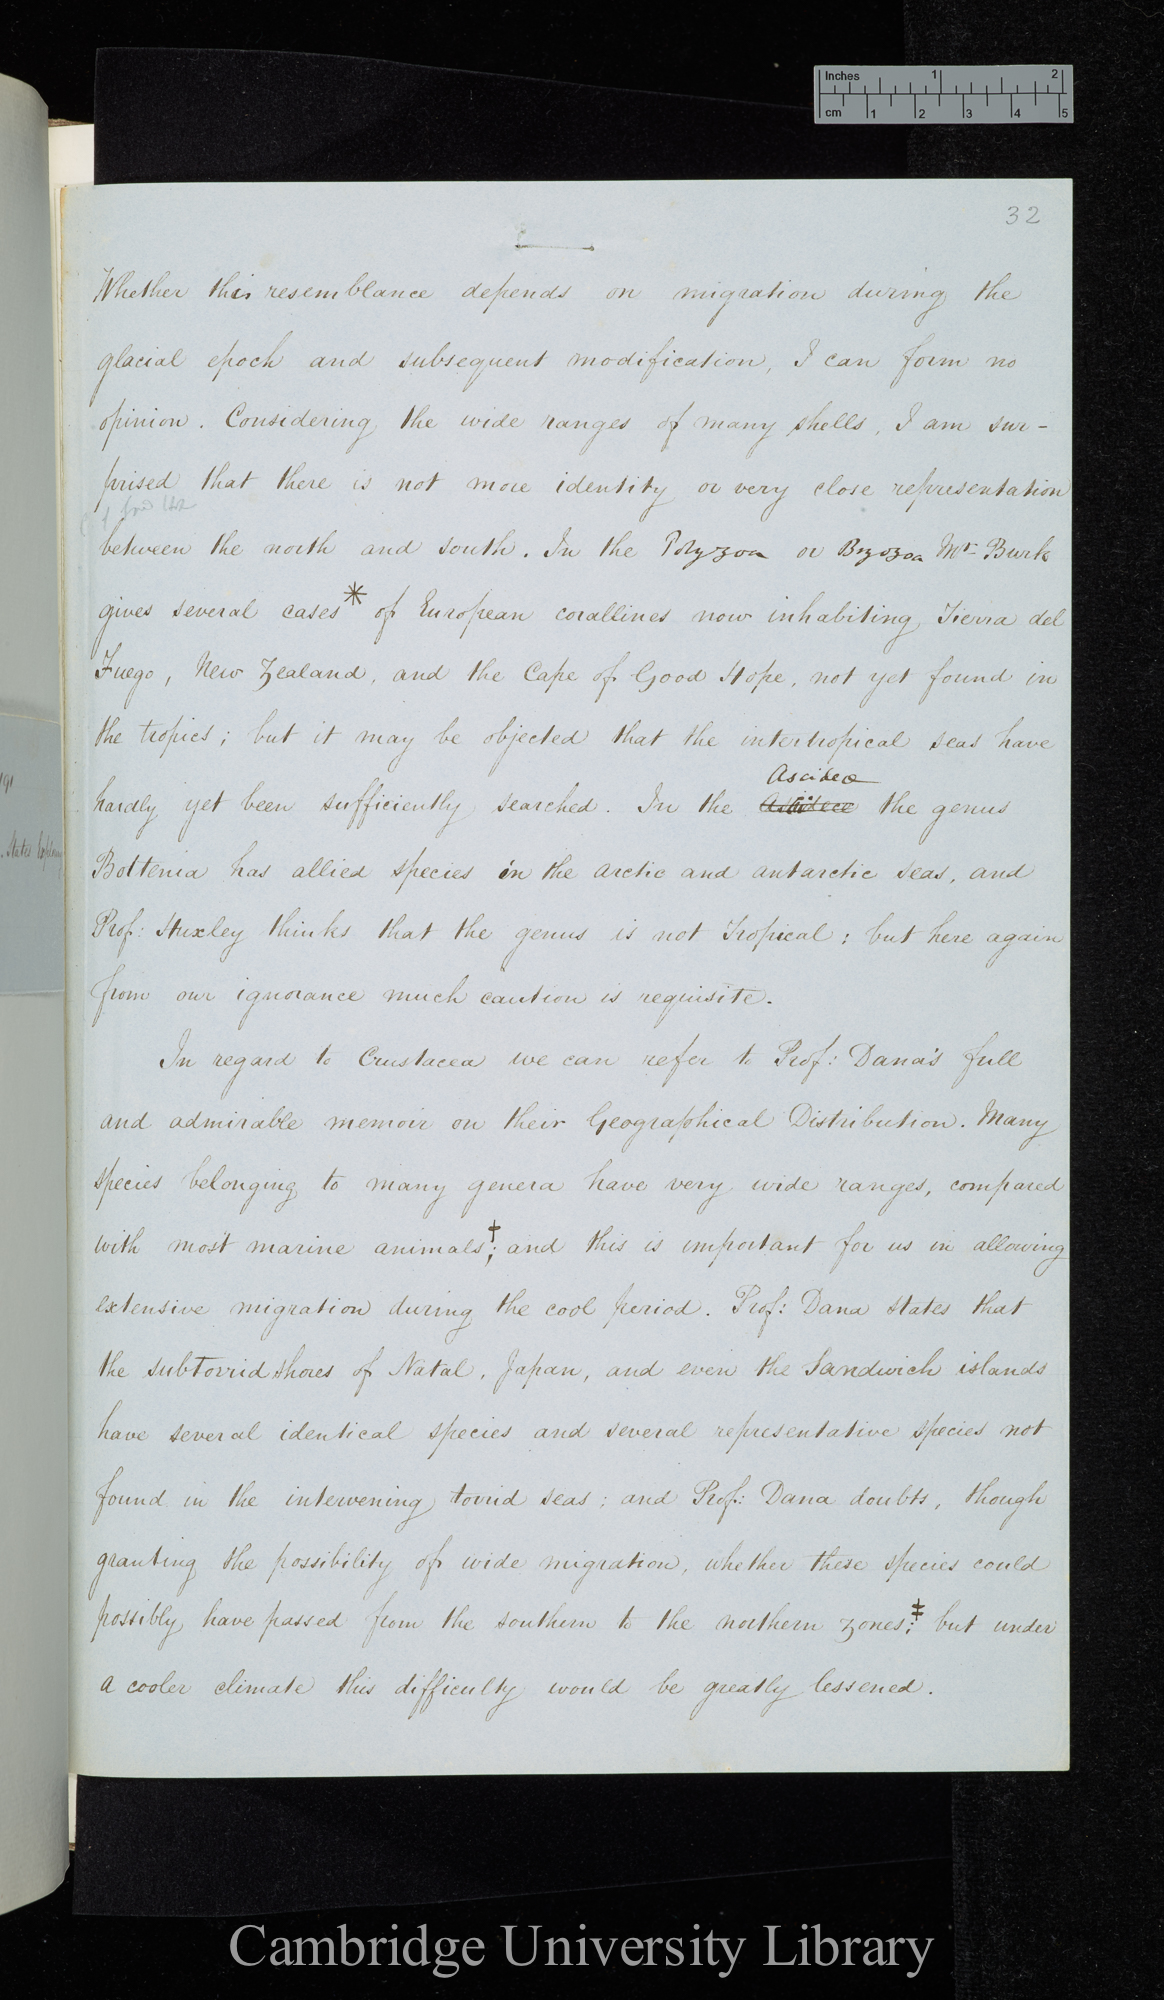 Inches 1 2
cm 1 2 3 4 5
32
Whether this resemblance depends on migration during the
glacial epoch and subsequent modification, I can form no
opinion. Considering the wide ranges of many shells, I am sur-
prised that there is not more identity or very close representation
between the north and south. In the Polyzoa or Bryozoa Mr. Busk
gives several cases* of European corallines now inhabiting Tierra del
Fuego, New Zealand, and the Cape of Good Hope, not yet found in
the tropics; but it may be objected that the intertropical seas have
Ascideæ
hardly yet been sufficiently searched. In the the genus
Boltenia has allied species in the arctic and antarctic seas, and
Prof: Huxley thinks that the genus is not Tropical; but here again
from our ignorance much caution is requisite.
In regard to Crustacea we can refer to Prof: Dana's full
and admirable memoir on their Geographical Distribution. Many
species belonging to many genera have very wide ranges, compared
with most marine animals†; and this is important for us in allowing
extensive migration during the cool period. Prof: Dana states that
the subtorrid shores of Natal, Japan, and even the Sandwich islands
have several identical species and several representative species not
found in the intervening torrid seas; and Prof: Dana doubts, though
granting the possibility of wide migration, whether these species could
possibly have passed from the southern to the northern zones;‡ but under
a cooler climate this difficulty would be greatly lessened.
Cambridge University Library